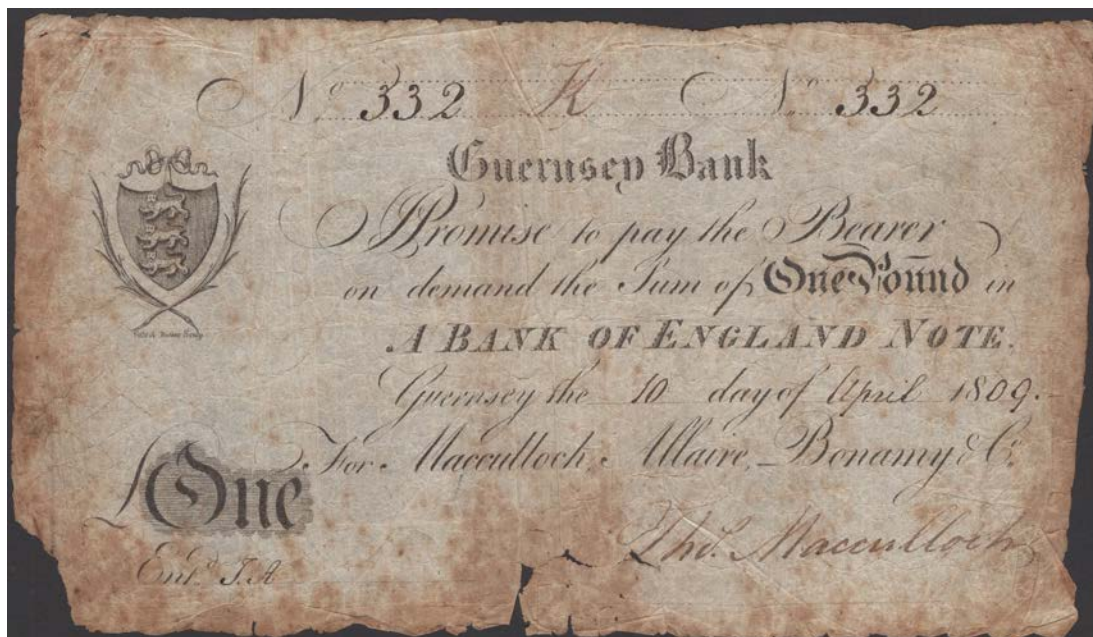 No. 332 K No. 332
Guernsey Bank
I Promise to pay the Bearer
on demand the Sum of One Pound in
A BANK OF ENGLAND NOTE.
Guernsey the 10 day of April 1809.
For Macculloch, Allaire, Bonamy & Co.
£One
Entd. J.A
Thos. Macculloch